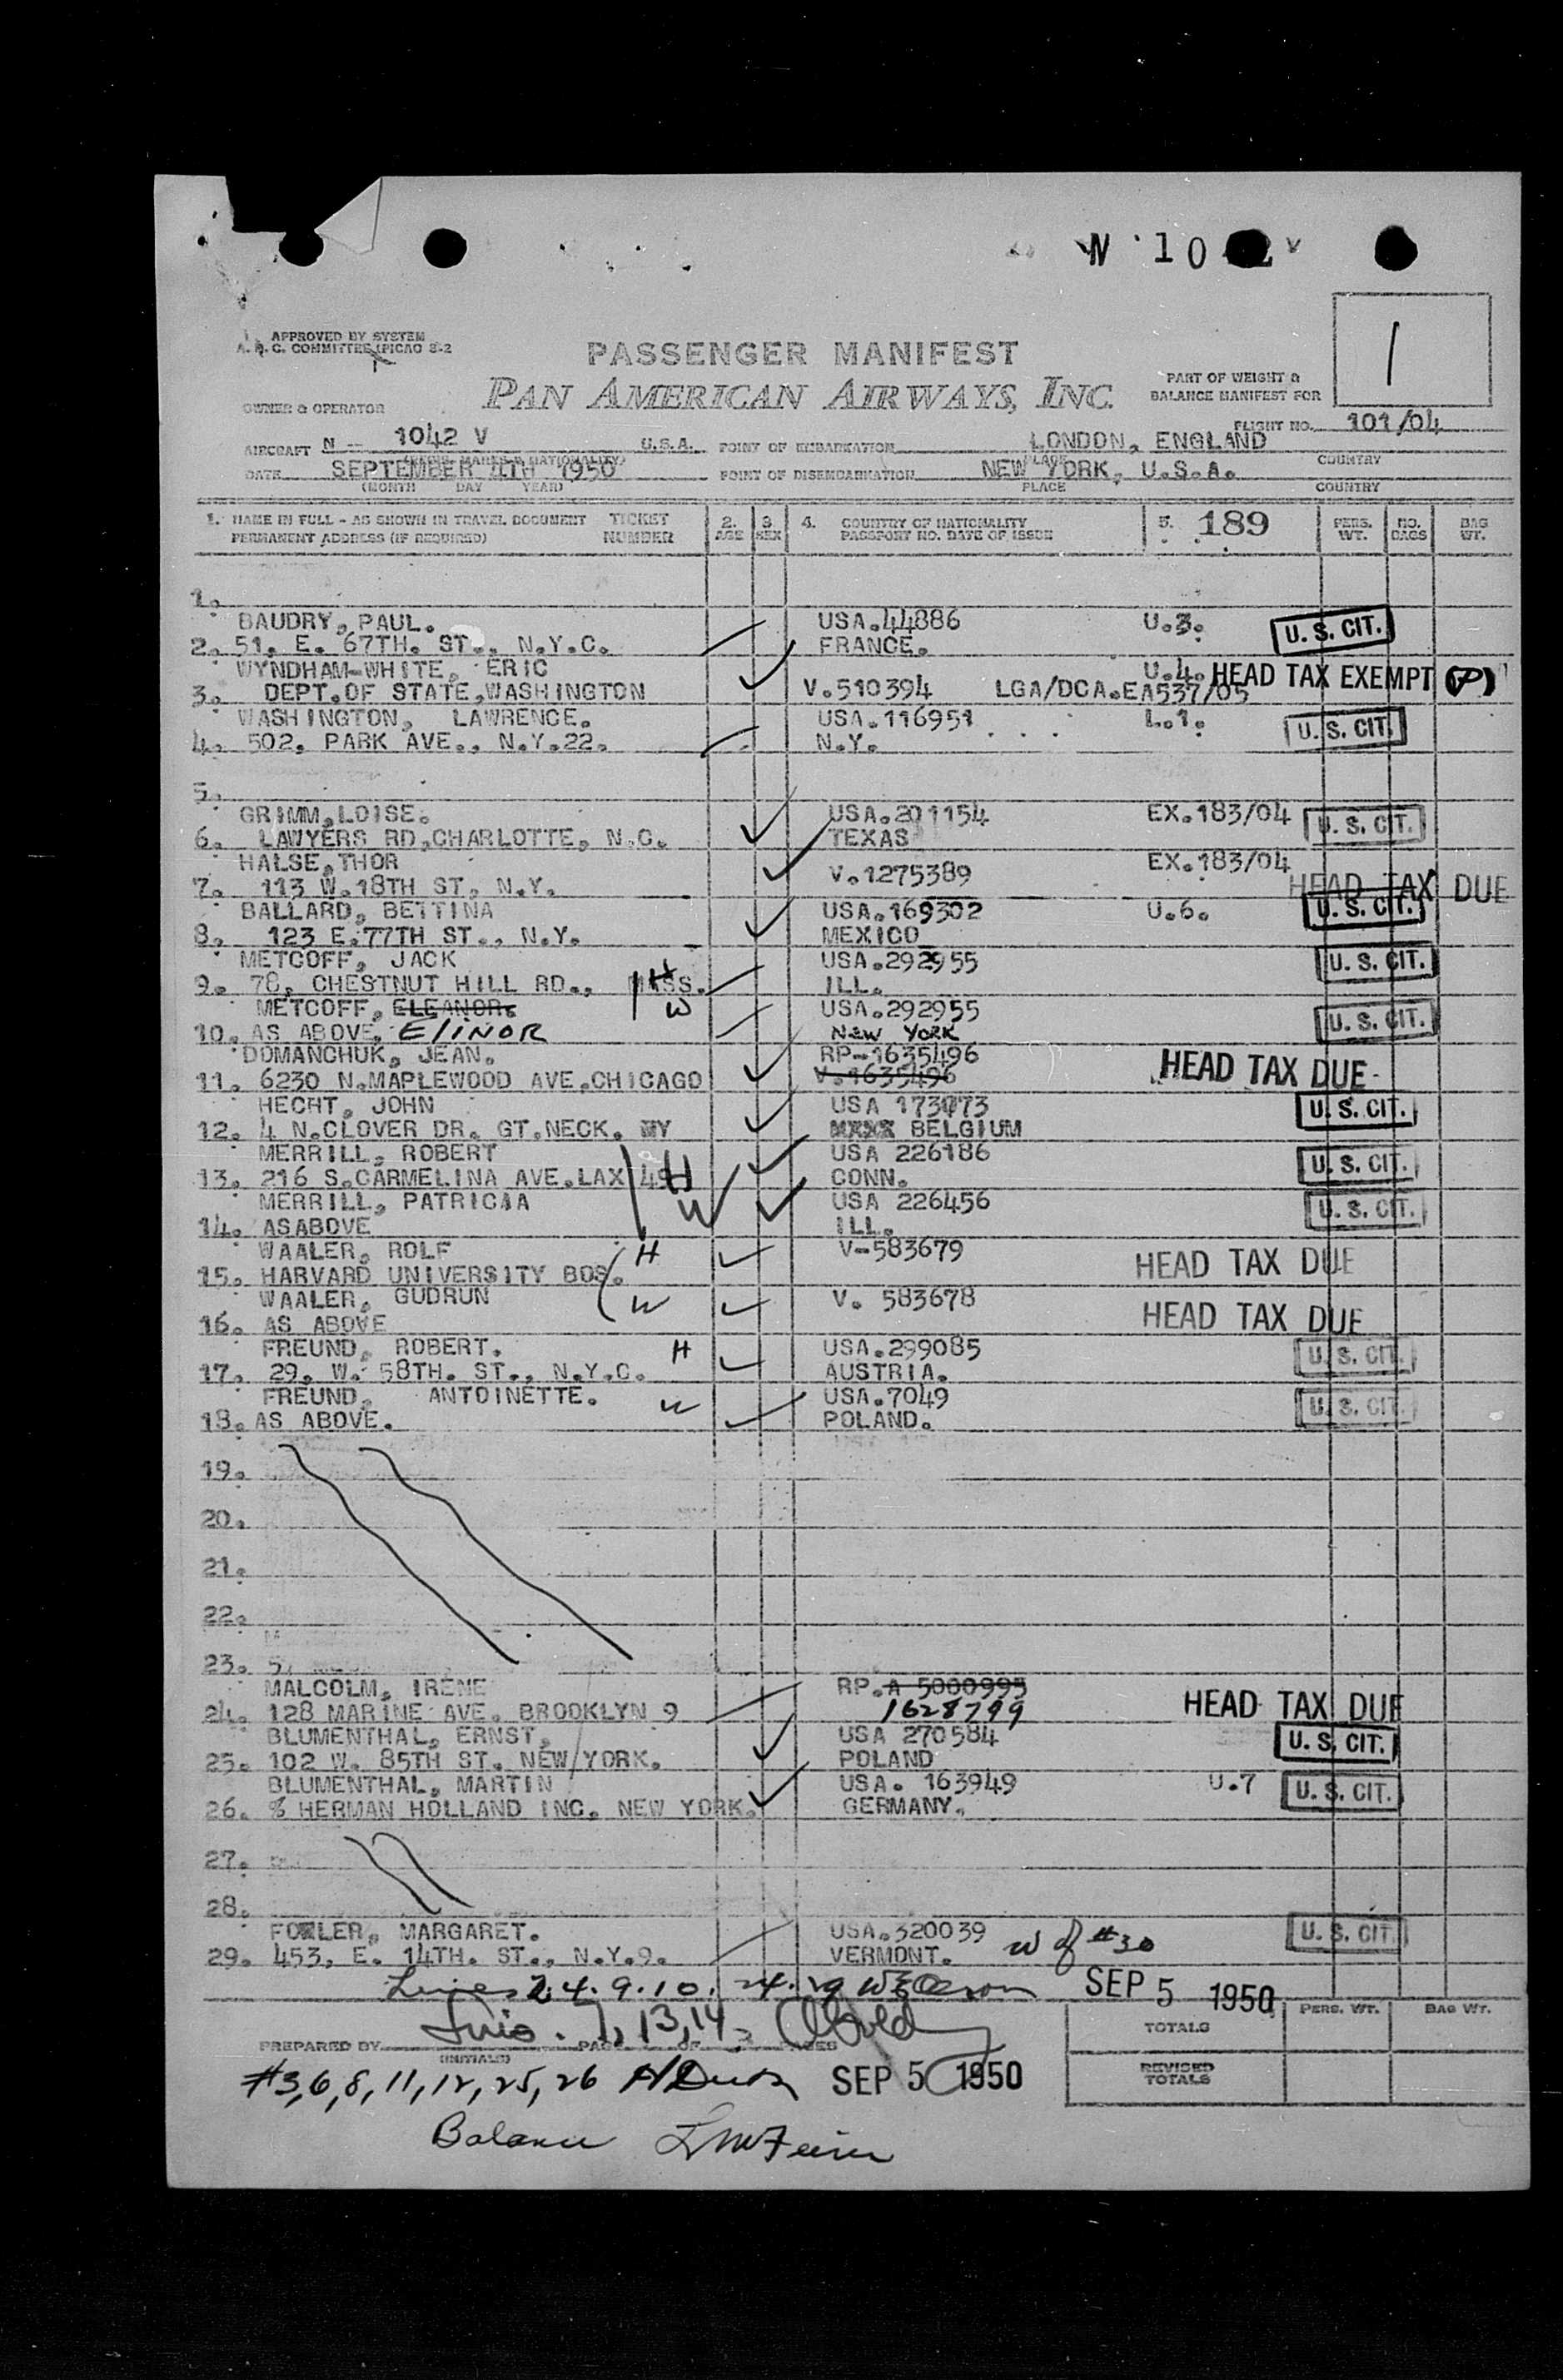 N 10 2 V
APPROVED BY SYSTEM
A. & C. COMMITTEE (PICAO S-2
PASSENGER MANIFEST
1
PAN AMERICAN AIRWAYS, INC.
PART OF WEIGHT &
BALANCE MANIFEST FOR
OWNER & OPERATOR
FLIGHT NO. 101/04
AIRCRAFT N - 1042 V U.S.A. POINT OF EMBARKATION LONDON, ENGLAND
PLACE COUNTRY
DATE SEPTEMBER 4TH 1950 POINT OF DISEMBARKATION NEW YORK, U.S.A.
(MONTH DAY YEAR) PLACE COUNTRY
1. NAME IN FULL - AS SHOWN IN TRAVEL DOCUMENT TICKET 2. 3 4. COUNTRY OF NATIONALITY 5. 189 PERS. NO. BAG
PERMANENT ADDRESS (IF REQUIRED) NUMBER AGE SEX PASSPORT NO. DATE OF ISSUE WT. BAGS WT.
1.
BAUDRY, PAUL. USA.44886 U.3. U. S. CIT.
2. 51. E. 67TH. ST., N.Y.C. FRANCE.
WYNDHAM-WHITE, ERIC U.4. HEAD TAX EXEMPT (P)
3. DEPT.OF STATE,WASHINGTON V.510394 LGA/DCA.EA537/05
WASHINGTON, LAWRENCE. USA.116951 L.1. U. S. CIT.
4. 502, PARK AVE., N.Y.22. N.Y.
5.
GRIMM,LOISE. USA.201154 EX.183/04 U. S. CIT.
6. LAWYERS RD,CHARLOTTE, N.C. TEXAS
HALSE,THOR V.1275389 EX.183/04
7. 113 W.18TH ST, N.Y. HEAD TAX DUE
BALLARD, BETTINA USA.169302 U.6. U. S. CIT.
8. 123 E.77TH ST., N.Y. MEXICO
METCOFF, JACK H USA.292955 U. S. CIT.
9. 78, CHESTNUT HILL RD., MASS. ILL.
METCOFF, ELEANOR. W USA.292955 U. S. CIT.
10. AS ABOVE. ElINOR NEW YORK
DOMANCHUK, JEAN. RP-1635496 HEAD TAX DUE
11. 6230 N.MAPLEWOOD AVE.CHICAGO V.1635496
HECHT, JOHN USA 173073 U. S. CIT.
12. 4 N.CLOVER DR. GT.NECK. NY BELGIUM
MERRILL, ROBERT USA 226186 U. S. CIT.
13. 216 S.CARMELINA AVE.LAX 49 H CONN.
MERRILL, PATRICIA W USA 226456 U. S. CIT.
14. ASABOVE ILL.
WAALER, ROLF H V-583679 HEAD TAX DUE
15. HARVARD UNIVERSITY BOS.
WAALER, GUDRUN W V. 583678 HEAD TAX DUE
16. AS ABOVE
FREUND, ROBERT. H USA.299085 U. S. CIT.
17. 29. W. 58TH. ST., N.Y.C. AUSTRIA.
FREUND, ANTOINETTE. W USA.7049 U. S. CIT.
18. AS ABOVE. POLAND.
19.
20.
21.
22.
23.
MALCOLM, IRENE RP.A 5000995 HEAD TAX DUE
24. 128 MARINE AVE. BROOKLYN 9 1628799
BLUMENTHAL, ERNST, USA 270584 U. S. CIT.
25. 102 W. 85TH ST. NEW YORK. POLAND
BLUMENTHAL, MARTIN USA. 163949 U.7 U. S. CIT.
26. % HERMAN HOLLAND INC. NEW YORK. GERMANY.
27.
28.
MARGARET. USA.320039 U. S. CIT.
29. 453. E. 14TH. ST., N.Y.9. VERMONT. W of #30
Lines 2.4.9.10. 24.29 SEP 5 1950
7, 13,14, PERS. WT. BAG WT.
TOTALS
PREPARED BY (INITIALS) PAGE OF PAGES
REVISED TOTALS
#3,6,8,11,12,25,26 SEP 5 1950
Balance